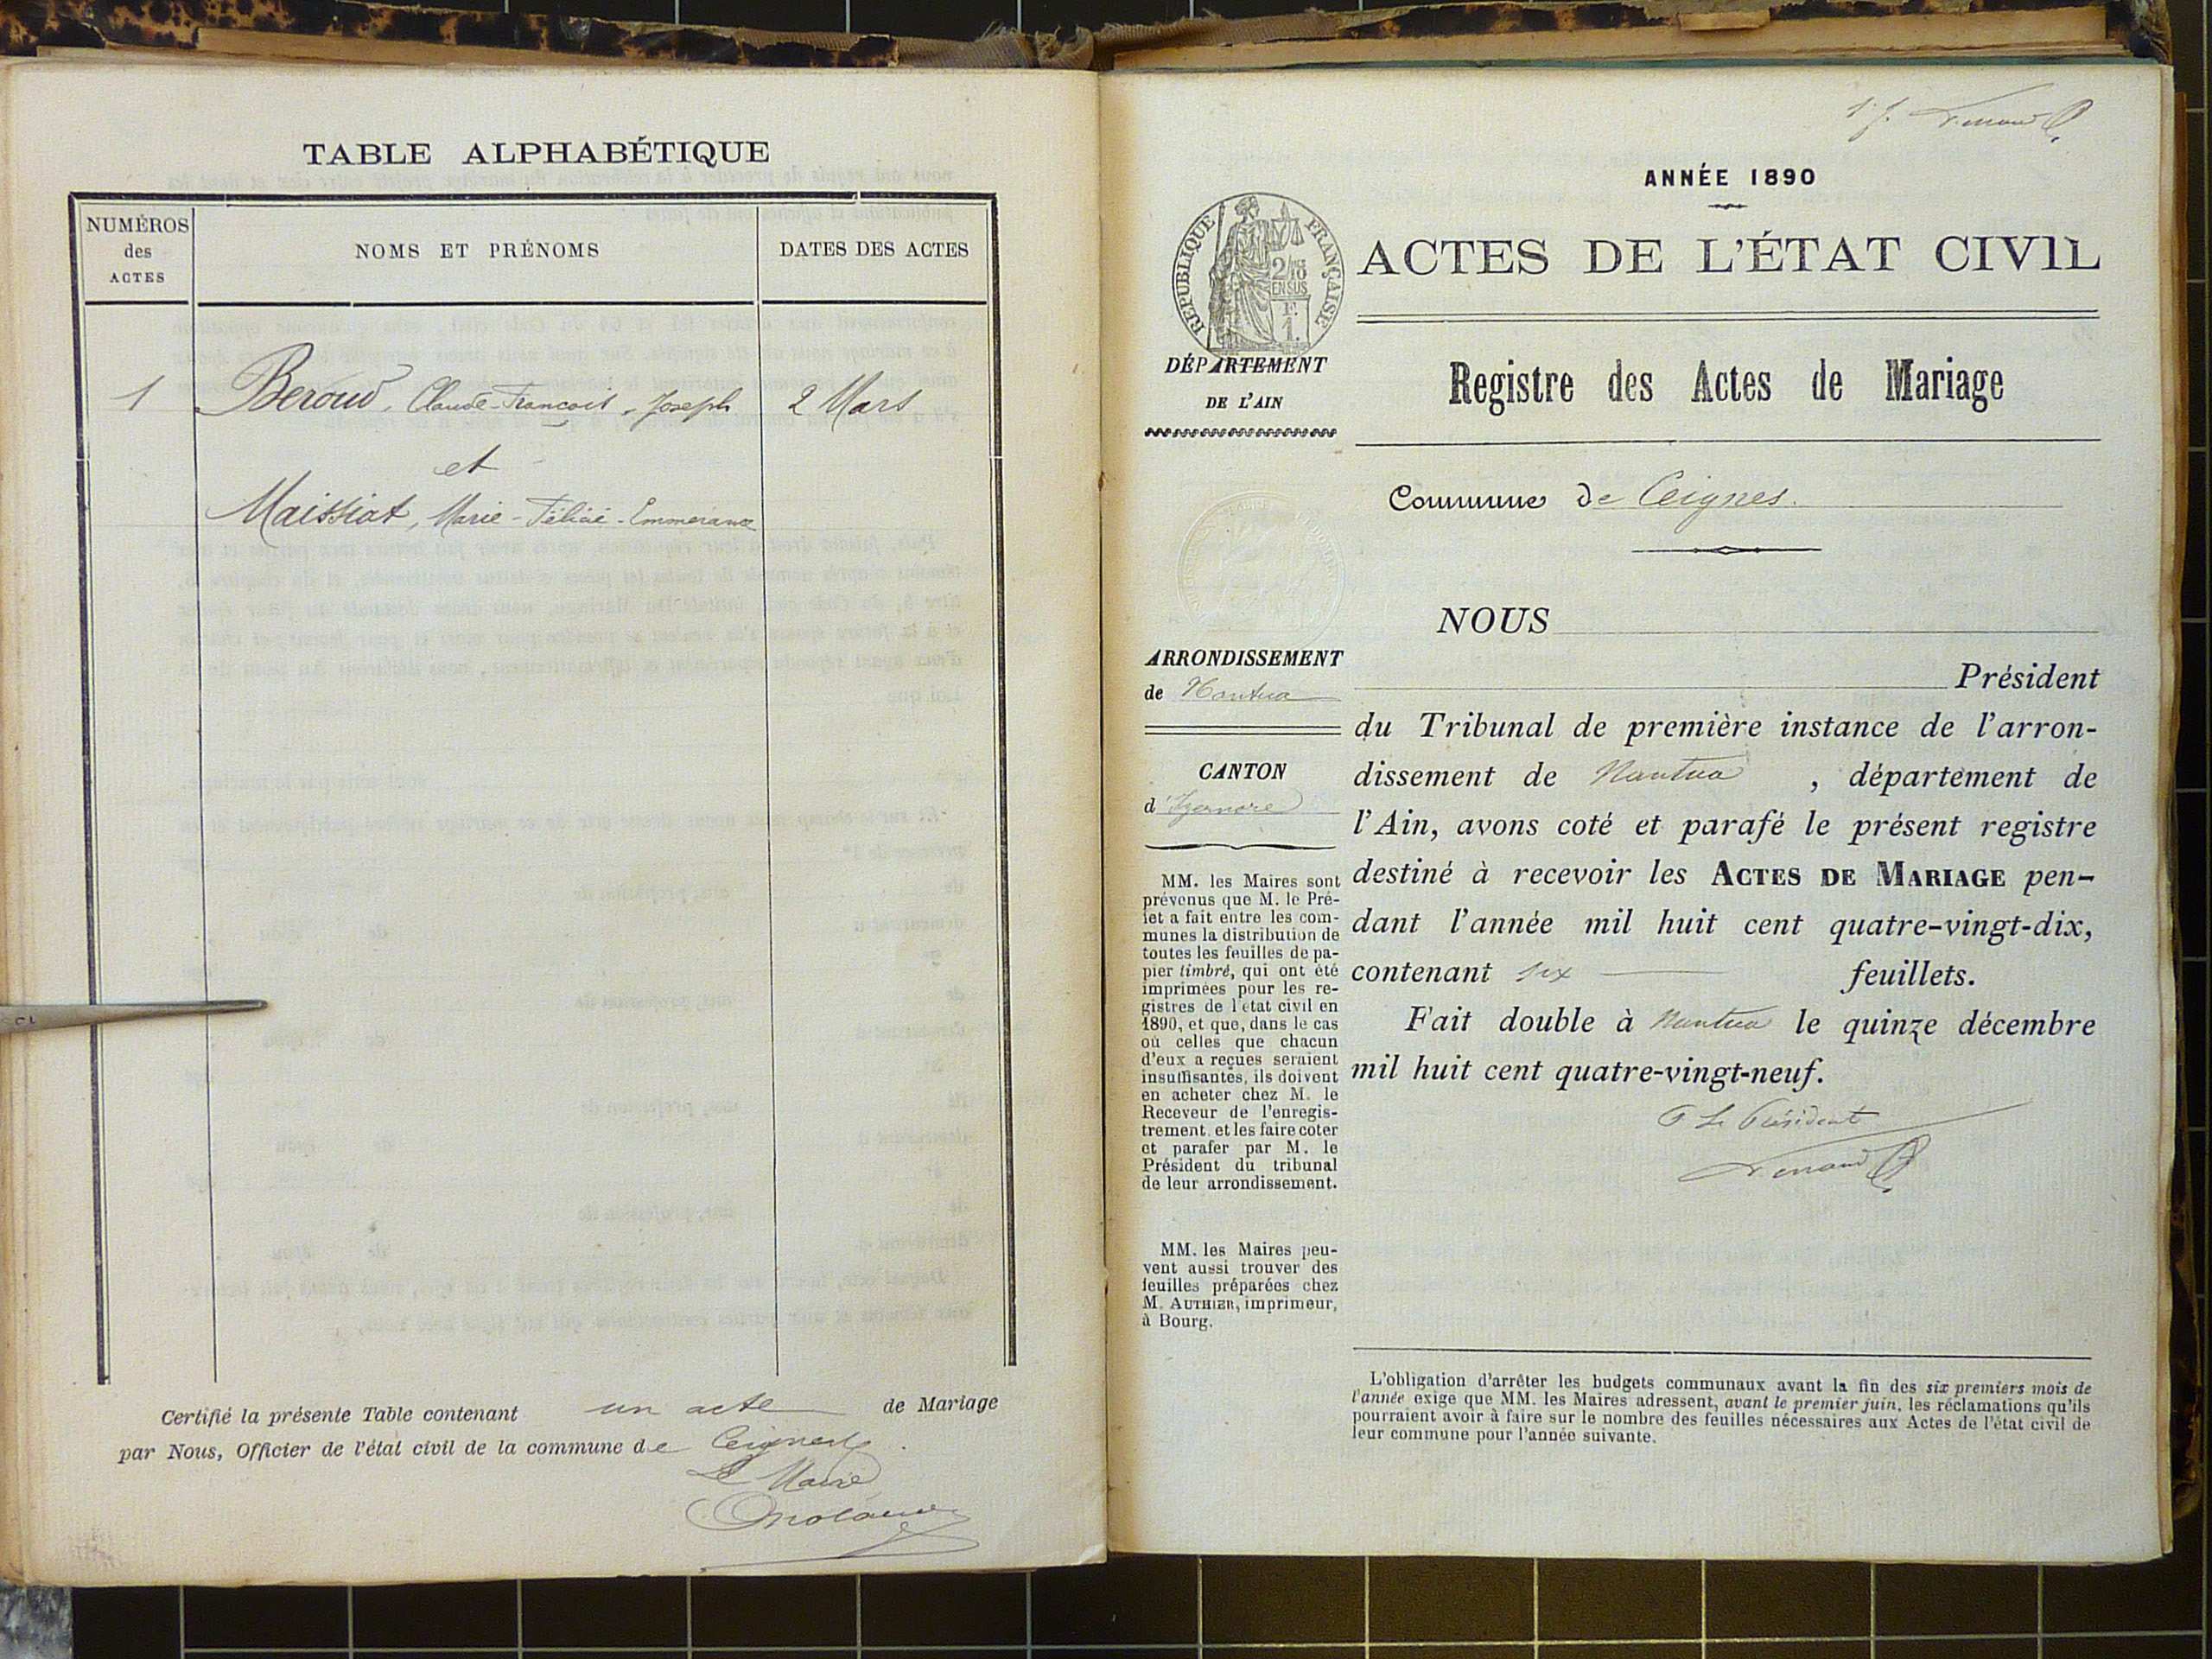 TABLE ALPHABÉTIQUE
NUMÉROS
des
ACTES
NOMS ET PRÉNOMS
DATES DES ACTES
1
Beroud, Claude-François-Joseph
2 Mars
et
Maissiat, Marie-Félicie-Emmerance
Certifié la présente Table contenant un acte de Mariage
par Nous, Officier de l'état civil de la commune de Ceignes
Le Maire
ANNÉE 1890
RÉPUBLIQUE FRANÇAISE
2/10
EN SUS
F.
1.
ACTES DE L'ÉTAT CIVIL
DÉPARTEMENT
DE L'AIN
Registre des Actes de Mariage
Commune de Ceignes.
ARRONDISSEMENT
de Nantua
CANTON
d'Izernore
MM. les Maires sont
prévenus que M. le Pré-
fet a fait entre les com-
munes la distribution de
toutes les feuilles de pa-
pier timbré, qui ont été
imprimées pour les re-
gistres de l'état civil en
1890, et que, dans le cas
où celles que chacun
d'eux a reçues seraient
insuffisantes, ils doivent
en acheter chez M. le
Receveur de l'enregis-
trement, et les faire coter
et parafer par M. le
Président du tribunal
de leur arrondissement.
MM. les Maires peu-
vent aussi trouver des
feuilles préparées chez
M. AUTHIER, imprimeur,
à Bourg.
NOUS
Président
du Tribunal de première instance de l'arron-
dissement de Nantua, département de
l'Ain, avons coté et parafé le présent registre
destiné à recevoir les ACTES DE MARIAGE pen-
dant l'année mil huit cent quatre-vingt-dix,
contenant six feuillets.
Fait double à Nantua le quinze décembre
mil huit cent quatre-vingt-neuf.
P Le Président
L'obligation d'arrêter les budgets communaux avant la fin des six premiers mois de
l'année exige que MM. les Maires adressent, avant le premier juin, les réclamations qu'ils
pourraient avoir à faire sur le nombre des feuilles nécessaires aux Actes de l'état civil de
leur commune pour l'année suivante.